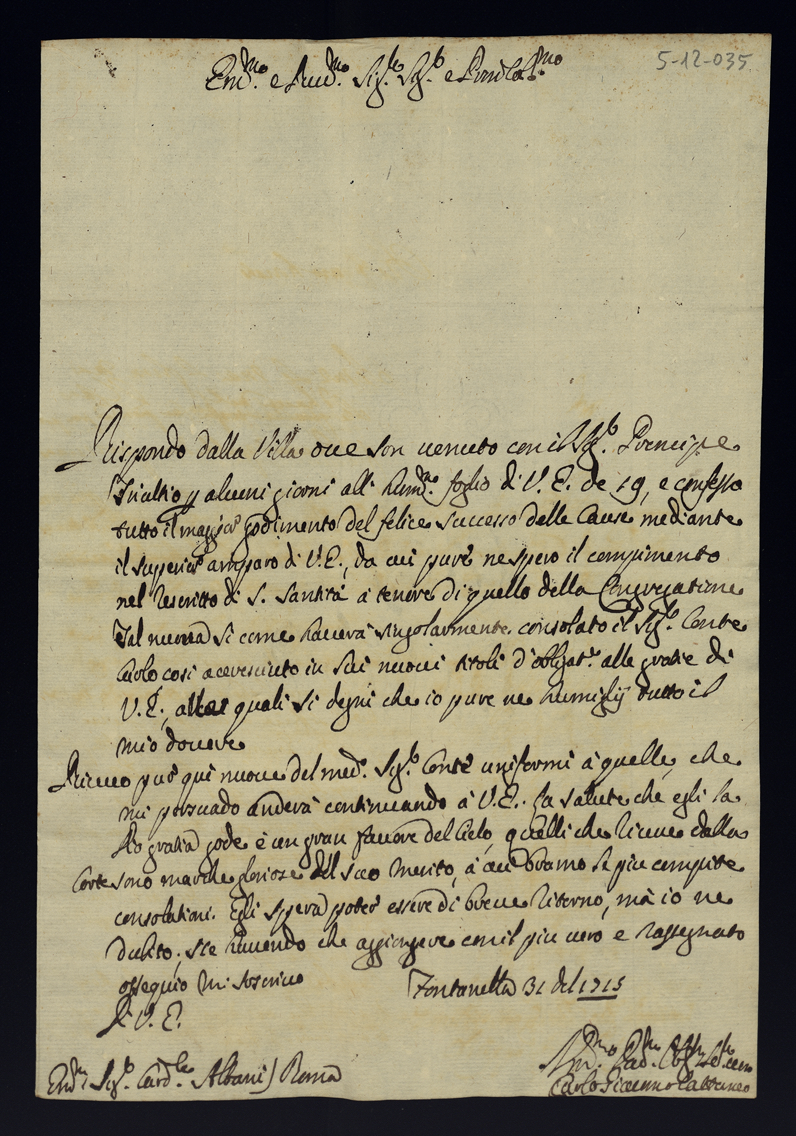 5-12-035
Em.mo e Reu.mo Sig.re Sig.r e Pron Col.mo
Rispondo dalla Villa oue son uenuto con il Sig.r Prencipe
Triultio p alcuni giorni alli hum.mo foglio di V. E. de 19, e confesso
tutto il maggior godimento del felice successo delle Cause mediante
il superior amparo di V. E., da cui pure ne spero il compimento
nel rescritto di S. Santità a tenore di quello della Congregatione
Tal nuoua si come hauerà singolarmente consolato il Sig.r Conte
Carlo così accresciuto in lui nuoui titoli d'obligat.e alle gratie di
V. E., alle quali si degni che io pure ne humilij tutto il
mio douere
Riceuo pur qui nuoue del med.o Sig.r Conte uniformi à quelle che
mi persuado anderà continuando à V. E. la salute che egli la
Dio gratia gode è un gran fauore del Cielo, quelli che riceue dalla
Corte sono marche gloriose del suo merito, à cui bramo le piu compite
consolationi. Egli spera poter essere di breue ritorno, mà io ne
dubito; ne hauendo che aggiongere con il piu uero e rassegnato
ossequio mi soscriuo
Di V. E.
Fontanella 31 1715
Em.mo Sig.r Card.le Albani / Roma
Carlo Giacomo Cattaneo